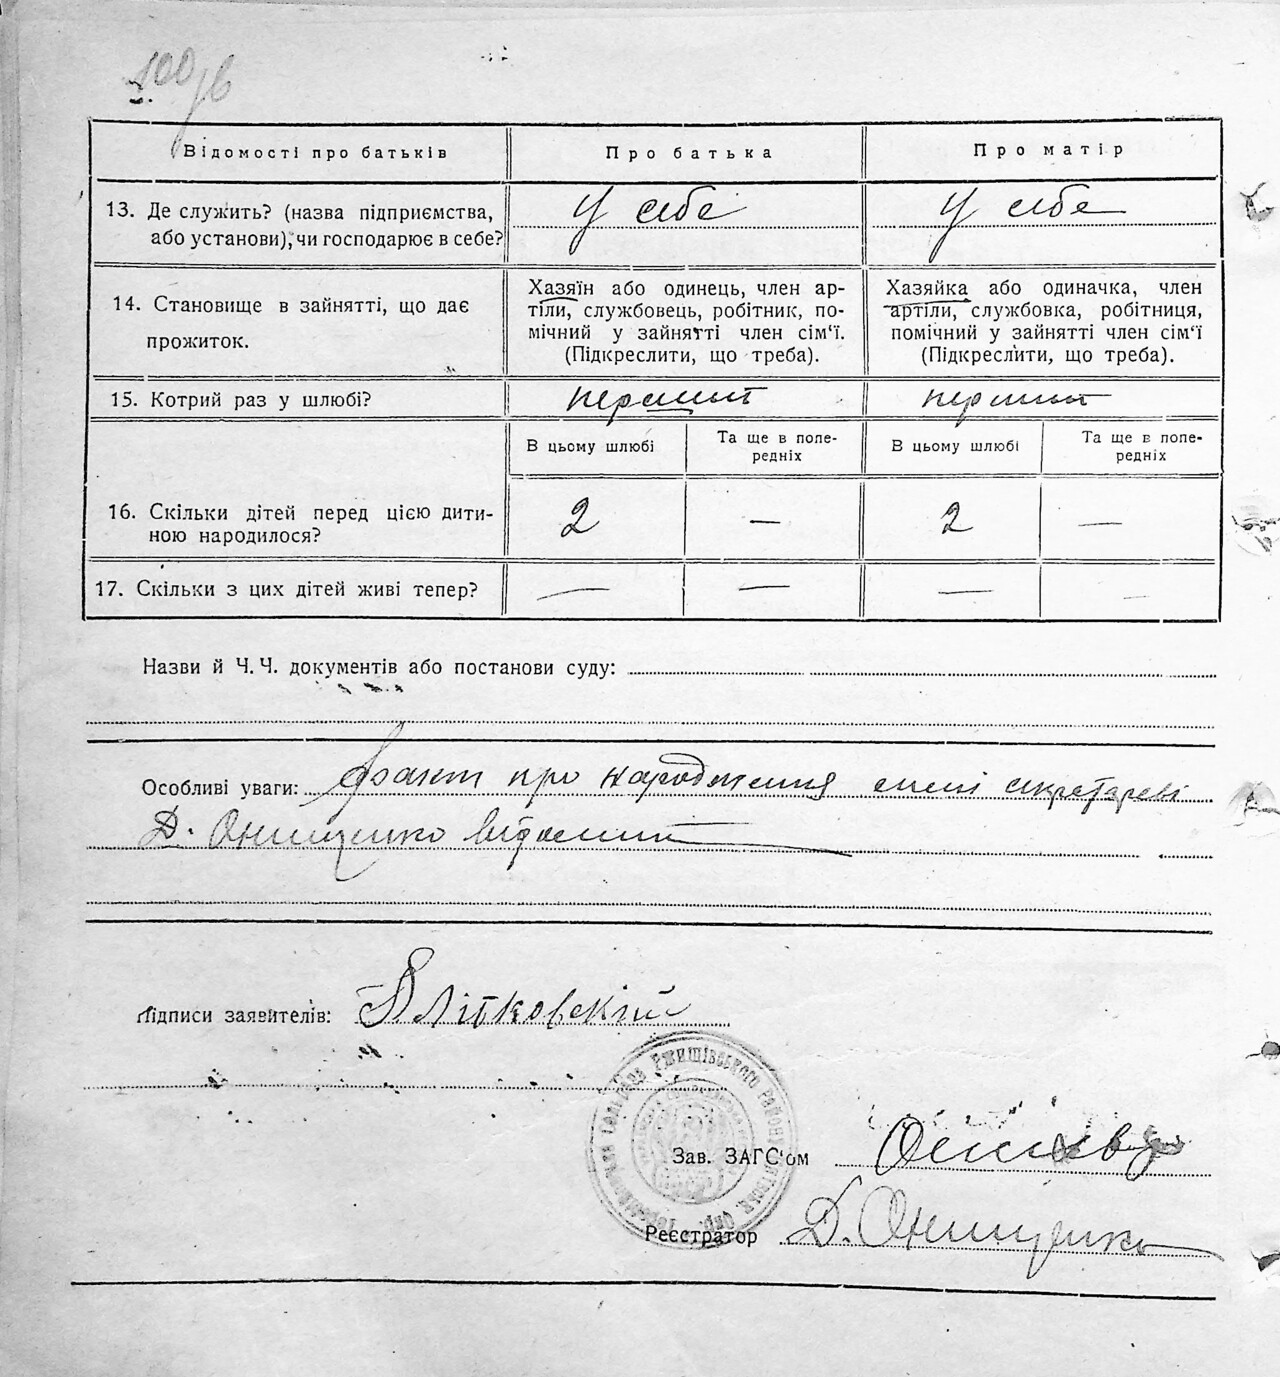 100 зв
Відомості про батьків
Про батька
Про матір
13. Де служить? (назва підприємства, або установи), чи господарює в себе?
У себе
У себе
14. Становище в зайнятті, що дає прожиток.
Хазяїн або одинець, член ар-
тіли, службовець, робітник, по-
мічний у зайнятті член сім'ї.
(Підкреслити, що треба).
Хазяйка або одиначка, член
артіли, службовка, робітниця,
помічний у зайнятті член сім'ї
(Підкреслити, що треба).
15. Котрий раз у шлюбі?
перший
перший
В цьому шлюбі
Та ще в попе-
редніх
В цьому шлюбі
Та ще в попе-
редніх
16. Скільки дітей перед цією дити-
ною народилося?
2
—
2
—
17. Скільки з цих дітей живі тепер?
—
—
—
—
Назви й Ч. Ч. документів або постанови суду:
Особливі уваги: Факт про народження мені секретареві
Д. Онищенко відомий
Підписи заявителів: Плітковскій
Ржищівського району
Зав. ЗАГС'ом
Реєстратор Д. Онищенко